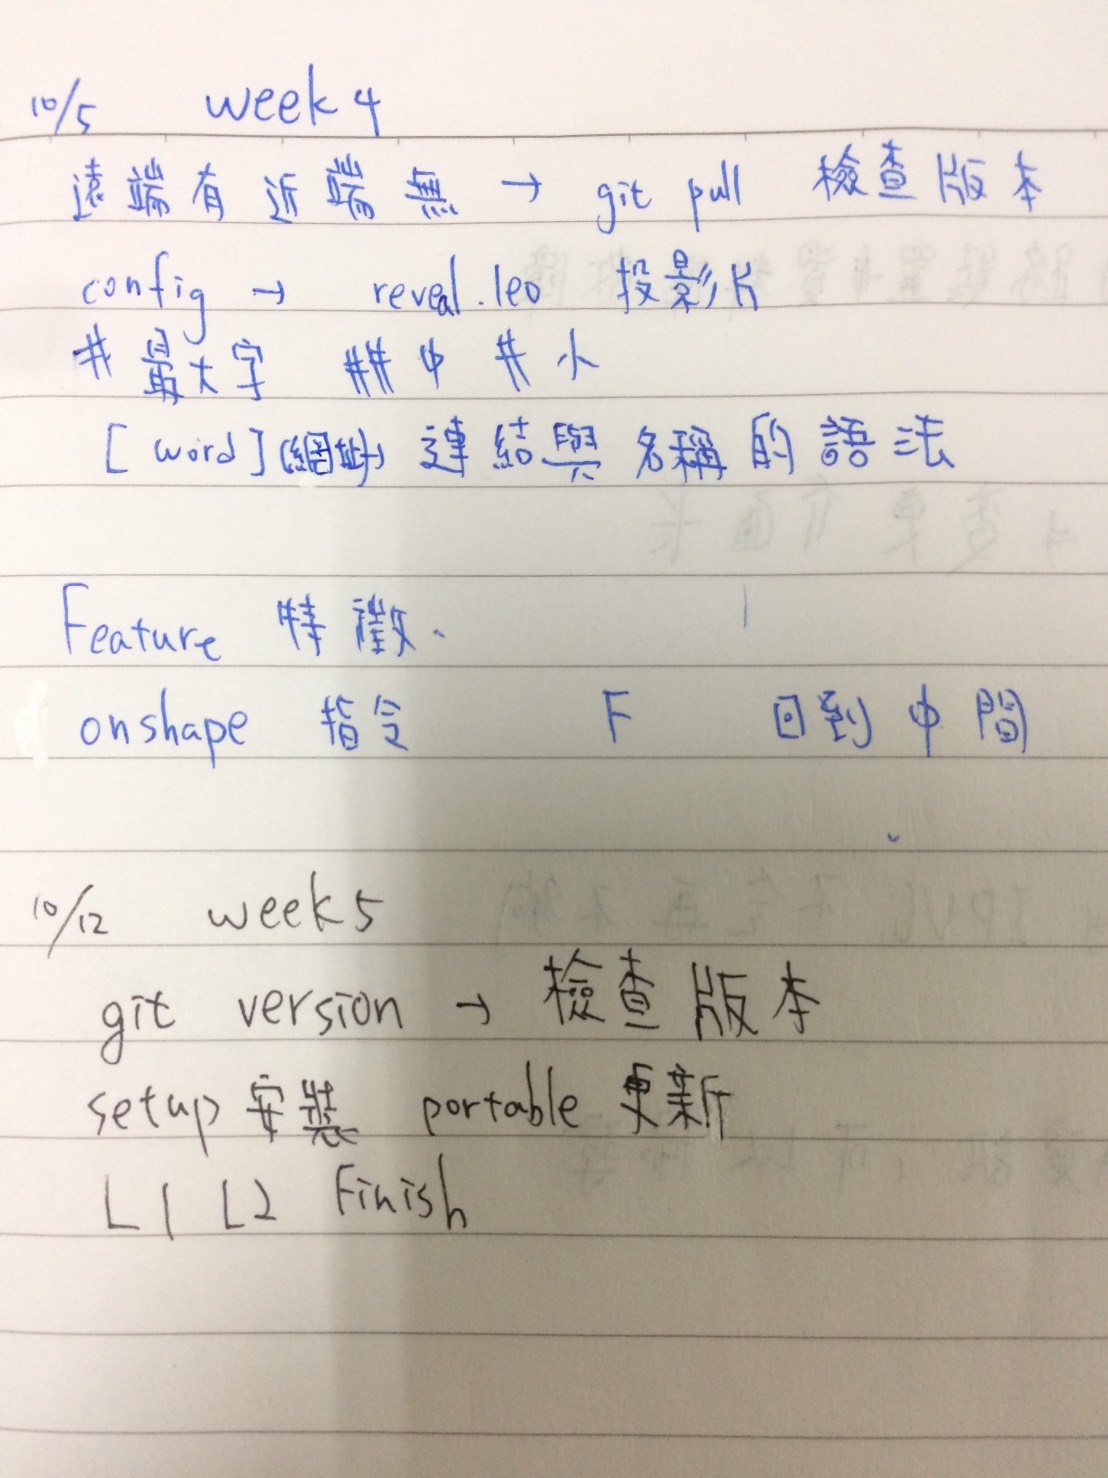 10/5 week 4
遠端有近端無 → git pull 檢查版本
config → reveal.leo 投影片
# 最大字 ### 中 # 小
[word](網址) 連結與名稱的語法
Feature 特徵.
onshape 指令 F 回到中間
10/12 week5
git version → 檢查版本
setup 安裝 portable 更新
L1 L2 Finish